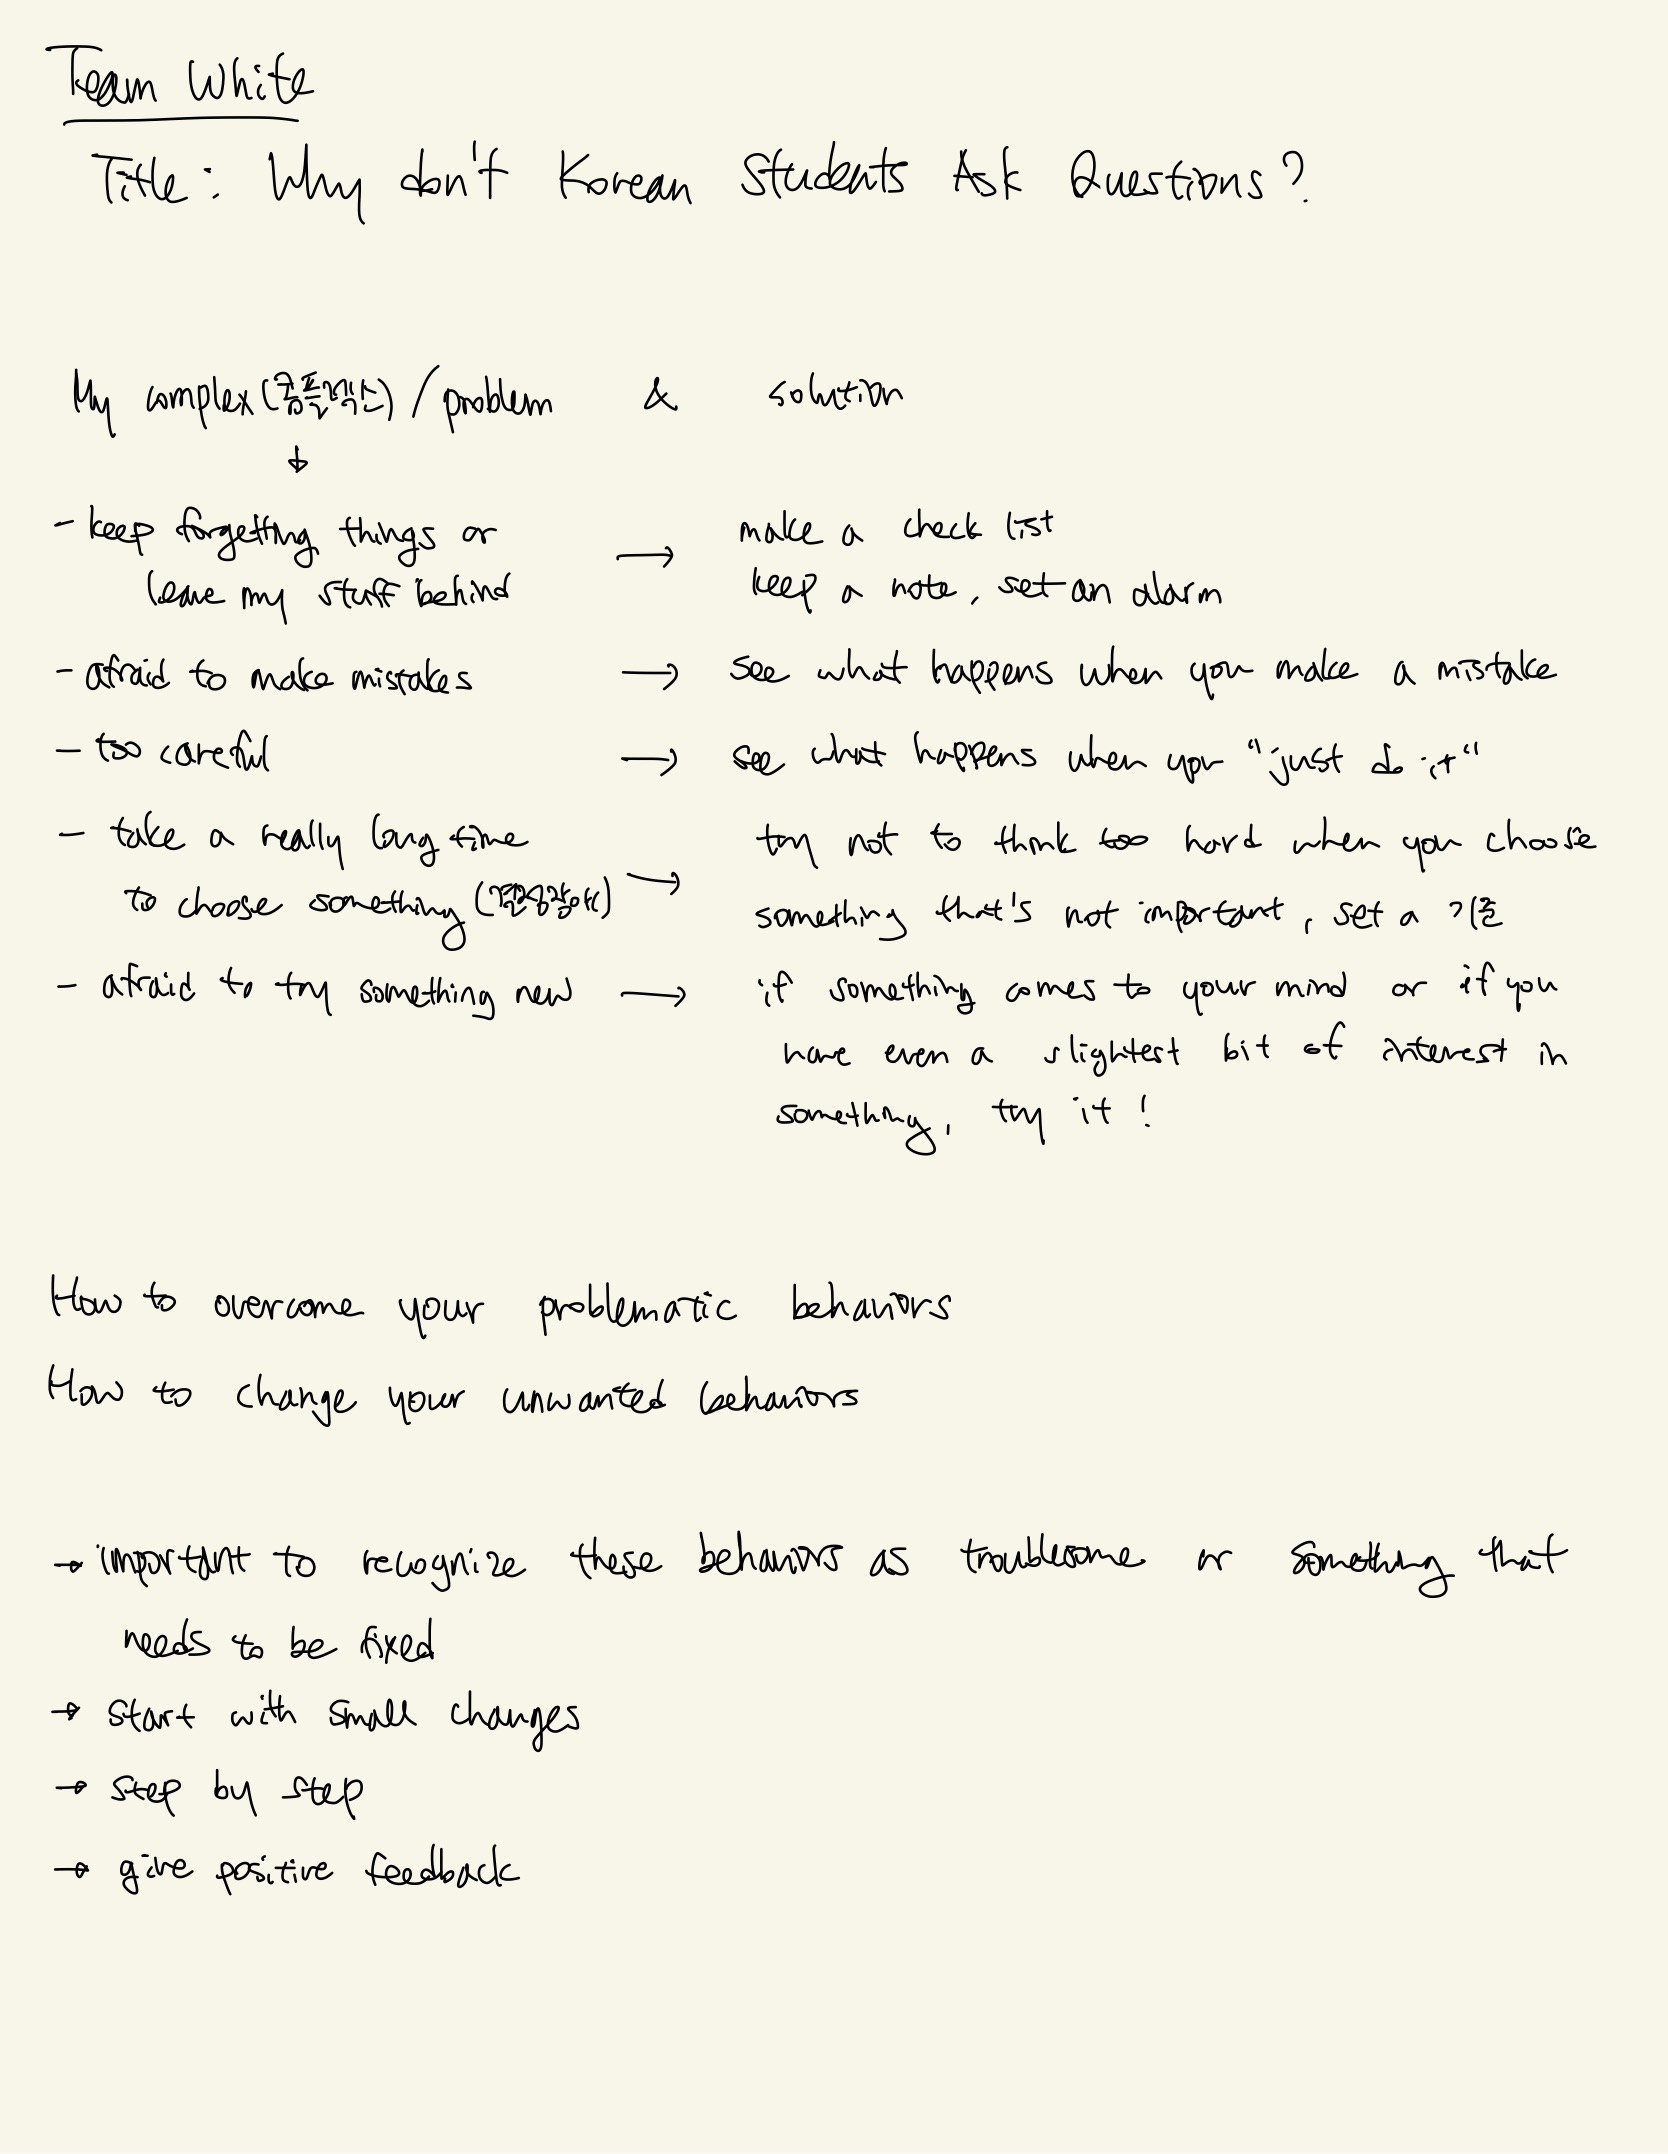 Team White
Title: Why don't Korean Students Ask Questions?
My complex (콤플렉스) / problem & solution
↓
- keep forgetting things or → make a check list
leave my stuff behind keep a note, set an alarm
- afraid to make mistakes → see what happens when you make a mistake
- too careful → see what happens when you "just do it"
- take a really long time try not to think too hard when you choose
to choose something (결정장애) → something that's not important, set a 기준
- afraid to try something new → if something comes to your mind or if you
have even a slightest bit of interest in
something, try it!
How to overcome your problematic behaviors
How to change your unwanted behaviors
→ important to recognize these behaviors as troublesome or something that
needs to be fixed
→ start with small changes
→ step by step
→ give positive feedback